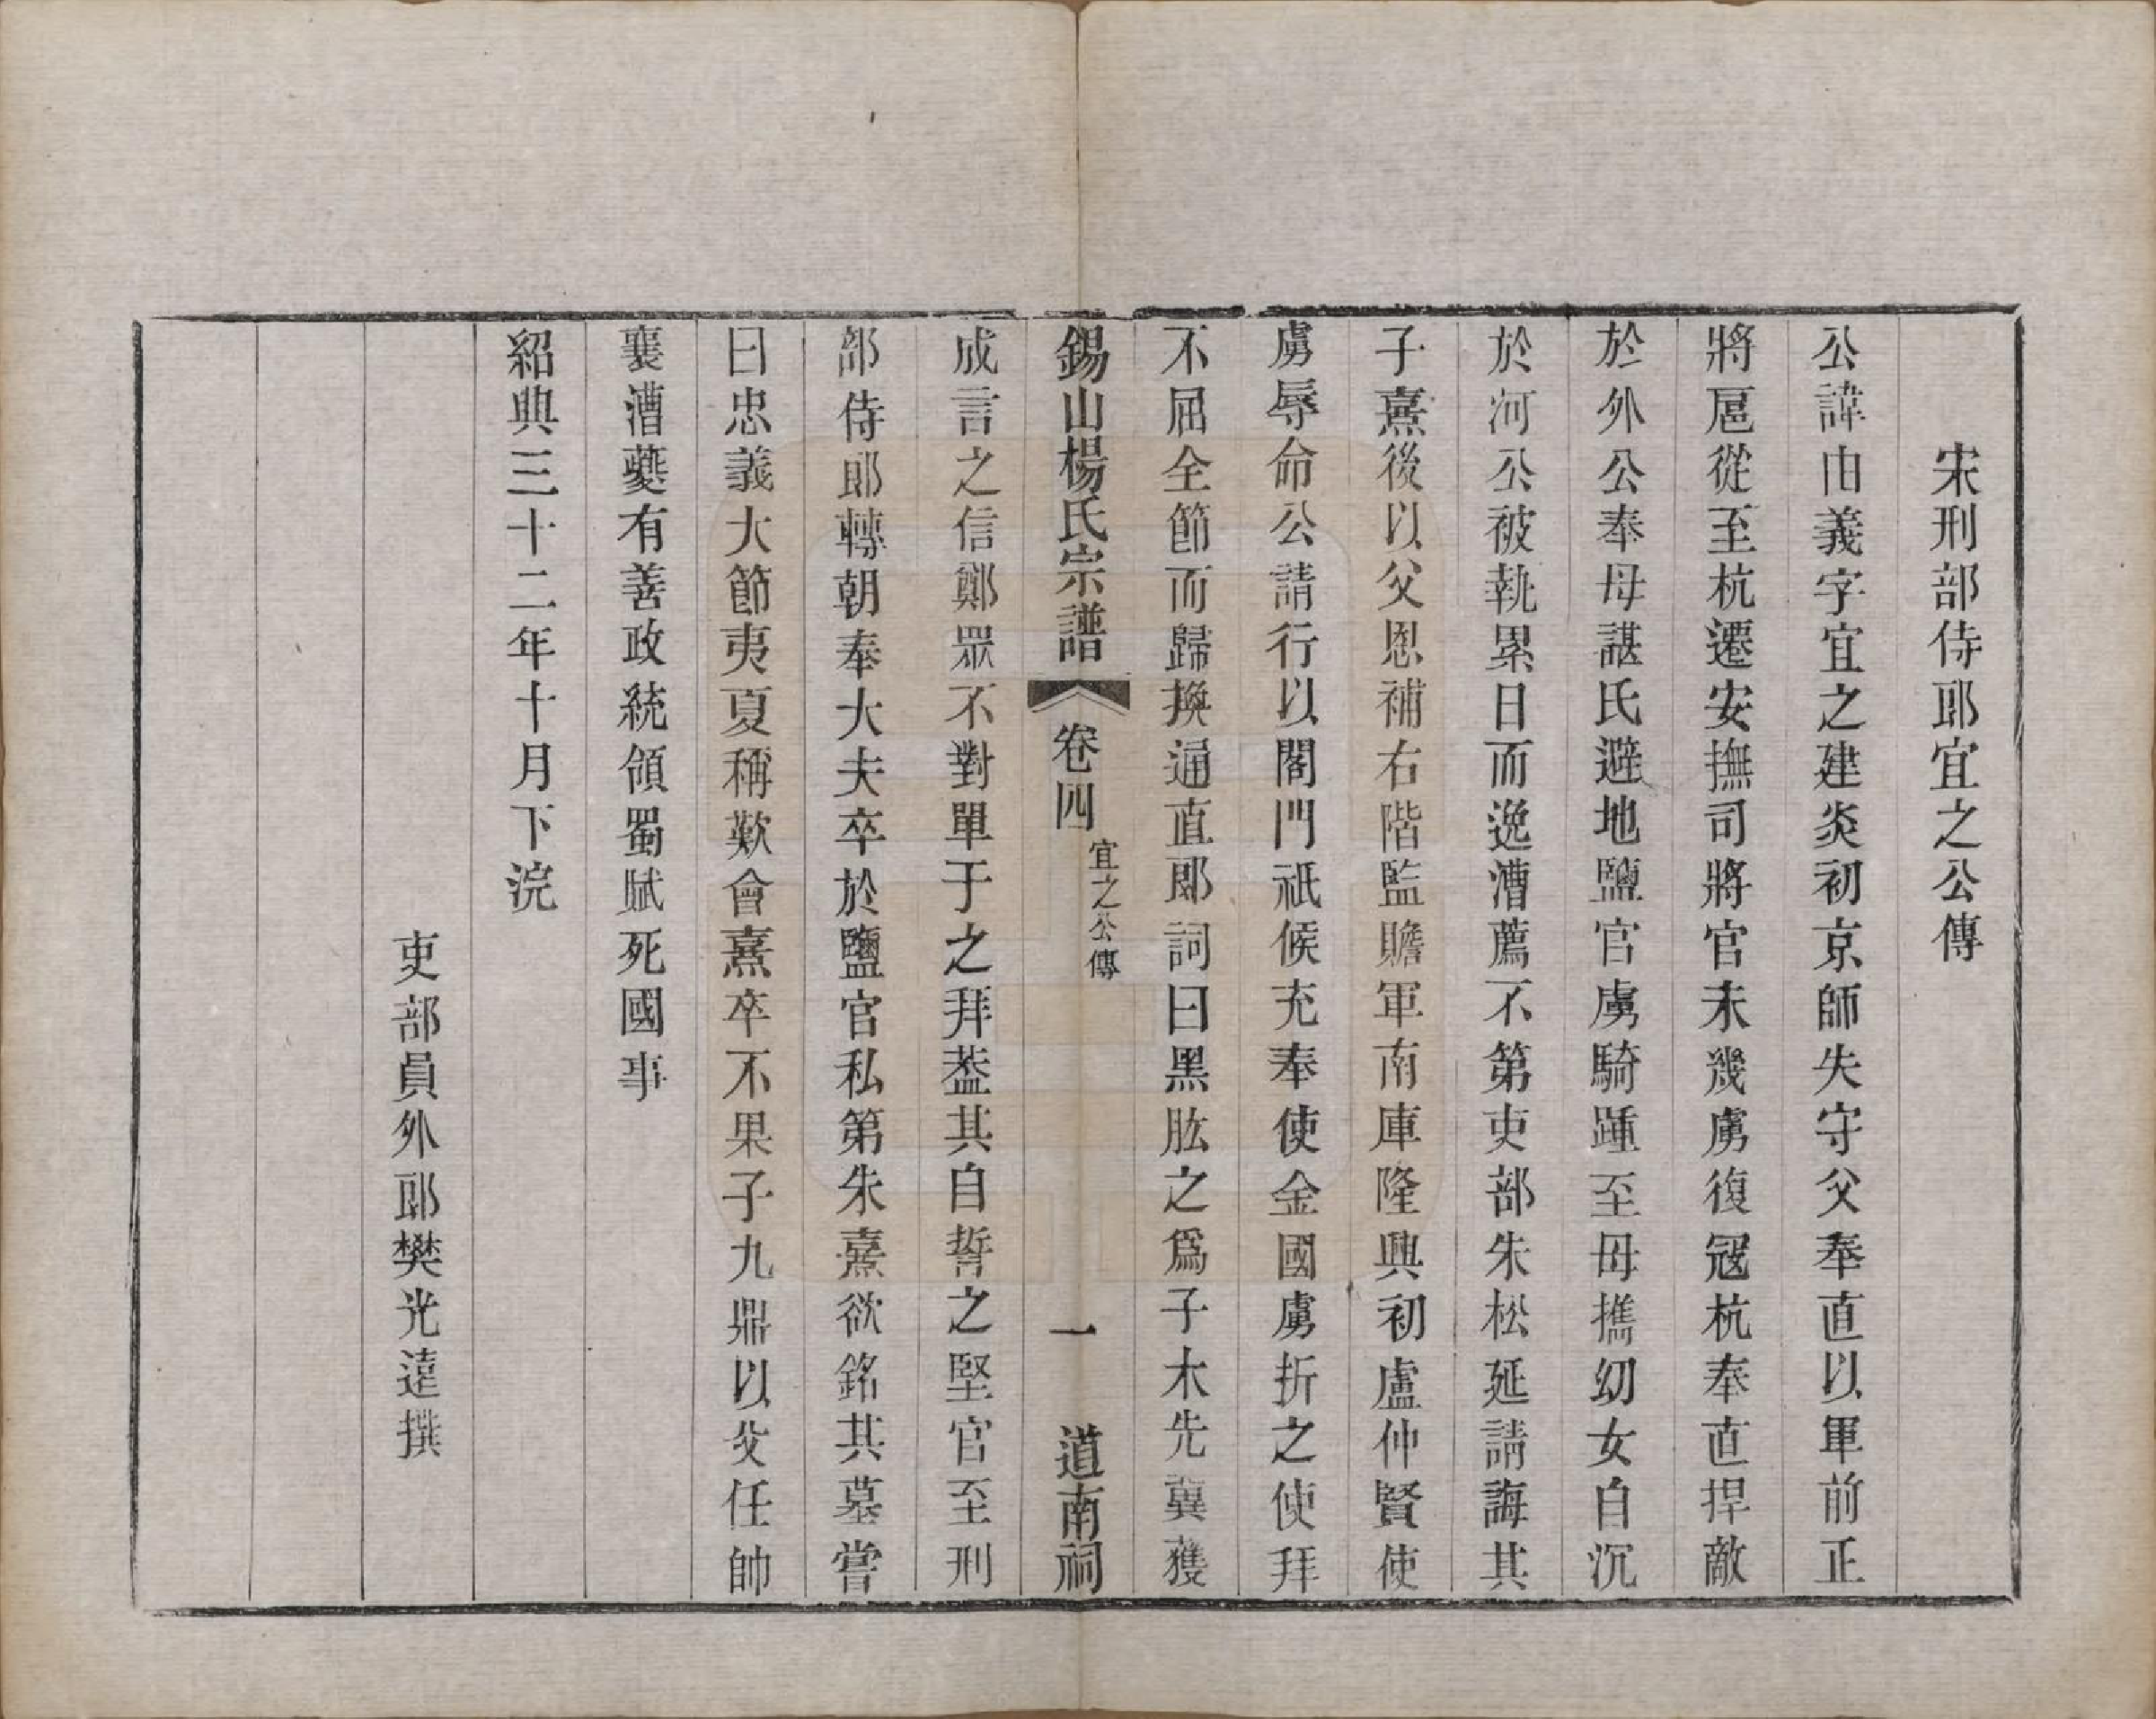 宋刑部侍郎宜之公傳
公諱由義字宜之建炎初京師失守父奉直以軍前正
將扈從至杭遷安撫司將官未幾虜復寇杭奉直捍敵
於外公奉母諶氏避地鹽官虜騎踵至母攜幼女自沉
於河公被執累日而逸漕薦不第吏部朱松延請誨其
子熹後以父恩補右階監贍軍南庫隆興初盧仲賢使
虜辱命公請行以閤門祇候充奉使金國虜折之使拜
不屈全節而歸換通直郎詞曰黑肱之爲子木先冀獲
錫山楊氏宗譜 卷四 宜之公傳 一 道南祠
成言之信鄭眾不對單于之拜葢其自誓之堅官至刑
部侍郎轉朝奉大夫卒於鹽官私第朱熹欲銘其墓嘗
曰忠義大節夷夏稱歎會熹卒不果子九鼎以父任帥
襄漕夔有善政統領蜀賦死國事
紹興三十二年十月下浣
吏部員外郎樊光遠撰